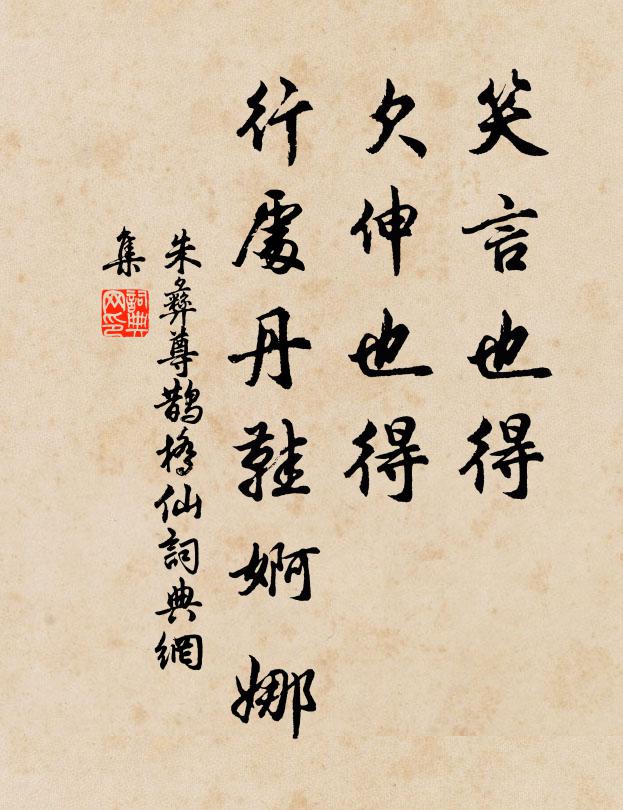 笑言也得
欠伸也得
行處丹鞋婀娜
朱彝尊鵲橋仙詞典網
集
詞典
网印